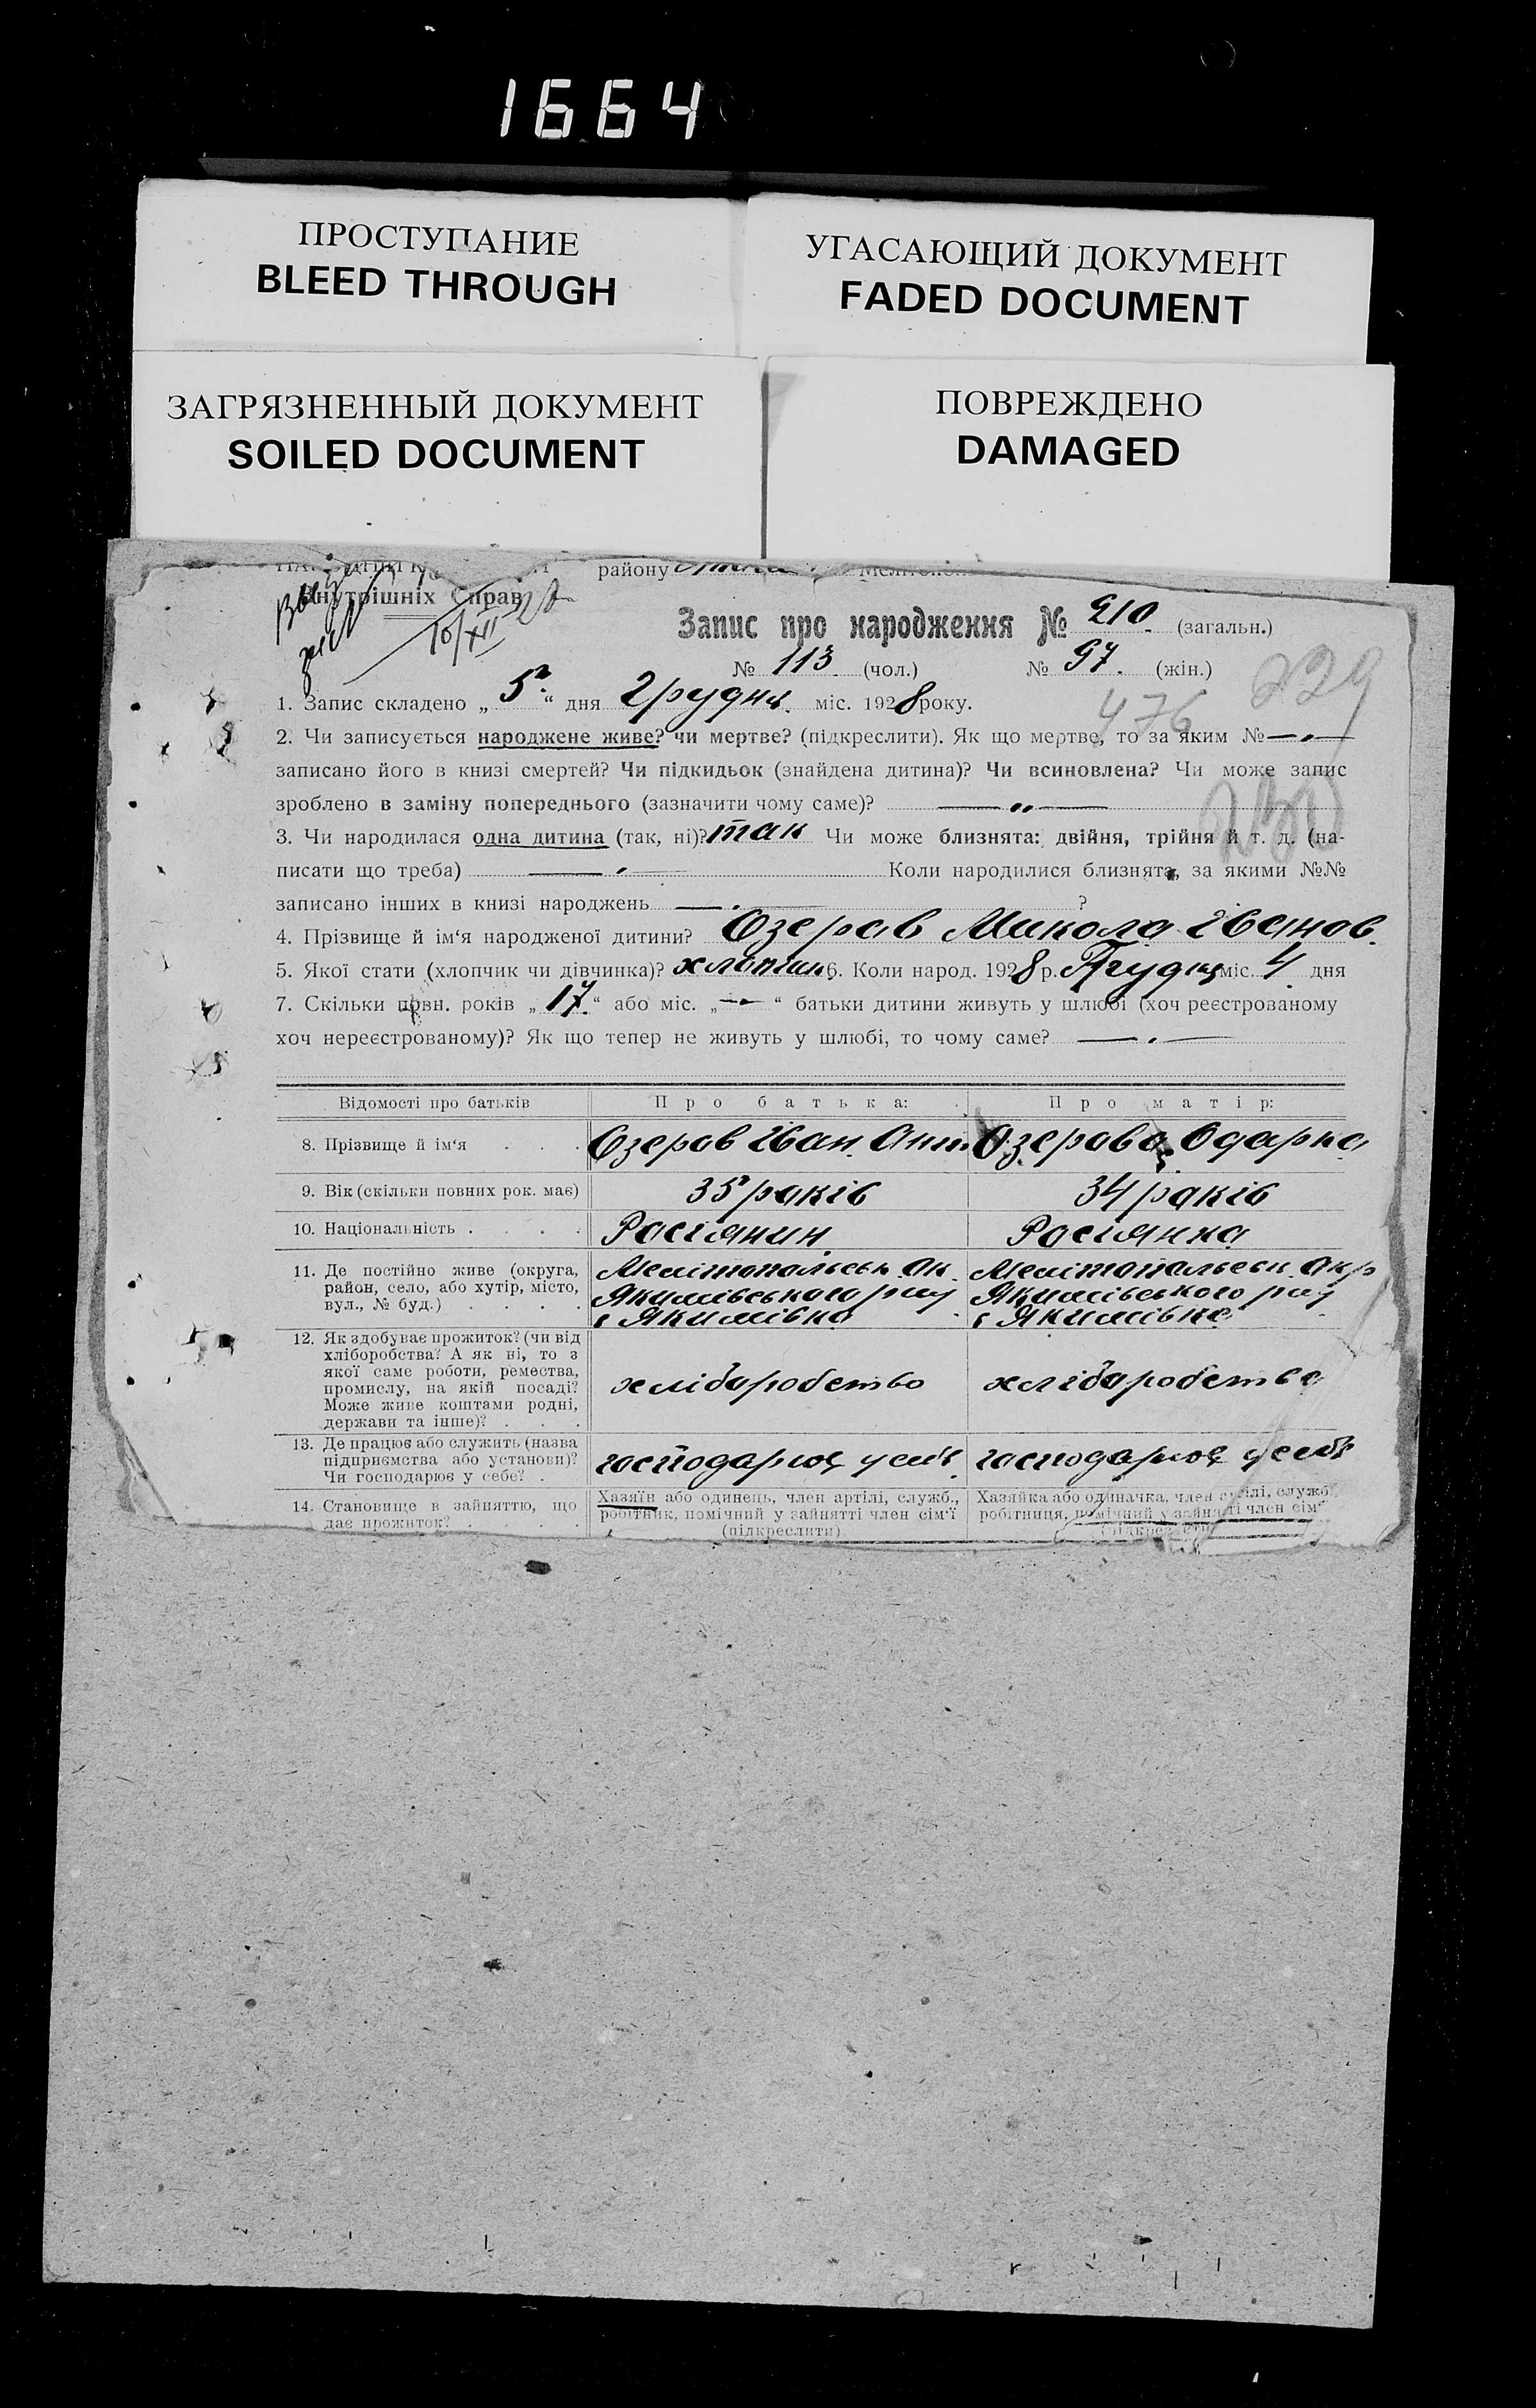 1664
ПРОСТУПАНИЕ
BLEED THROUGH
УГАСАЮЩИЙ ДОКУМЕНТ
FADED DOCUMENT
ЗАГРЯЗНЕННЫЙ ДОКУМЕНТ
SOILED DOCUMENT
ПОВРЕЖДЕНО
DAMAGED
району
Внутрішніх Справ
10/XII 28
Запис про народження № 210. (загальн.)
№ 113 (чол.) № 97. (жін.)
229
1. Запис складено „ 5 “ дня Грудня міс. 1928 року.
476
2. Чи записується народжене живе? чи мертве? (підкреслити). Як що мертве, то за яким №
записано його в книзі смертей? Чи підкидьок (знайдена дитина)? Чи всиновлена? Чи може запис
зроблено в заміну попереднього (зазначити чому саме)? — „ —
230
3. Чи народилася одна дитина (так, ні)? так Чи може близнята: двійня, трійня й т. д. (на-
писати що треба) Коли народилися близнята, за якими №№
записано інших в книзі народжень ?
4. Прізвище й ім‘я народженої дитини? Озеров Микола Іванов.
5. Якої стати (хлопчик чи дівчинка)? хлопчик 6. Коли народ. 1928 р. Грудня міс. 4 дня
7. Скільки повн. років „ 17 “ або міс. „ — “ батьки дитини живуть у шлюбі (хоч реєстрованому
хоч нереєстрованому)? Як що тепер не живуть у шлюбі, то чому саме?
Відомості про батьків Про батька: Про матір:
8. Прізвище й ім‘я Озеров Іван Ант. Озерова Одарка
9. Вік (скільки повних рок. має) 35 років 34 років
10. Національність Росіянин Росіянка
11. Де постійно живе (округа, район, село, або хутір, місто, вул., № буд.)
Мелітопольськ. Ок. Мелітопольськ. Окр
Якимівського р-ну Якимівського р-ну
с Якимівка с Якимівка
12. Як здобуває прожиток? (чи від
хліборобства? А як ні, то з
якої саме роботи, ремества,
промислу, на якій посаді?
Може живе коштами родні,
держави та інше)?
хліборобство хліборобство
13. Де працює або служить (назва
підприємства або установи)?
Чи господарює у себе?
господарює у себе господарює у себе
14. Становище в зайняттю, що
дає прожиток?
Хазяїн або одинець, член артілі, служб.,
робітник, помічний у зайнятті член сім‘ї
(підкреслити)
Хазяйка або одиначка, член артілі, служб.
робітниця, помічний у зайнятті член сім‘ї
(підкреслити)